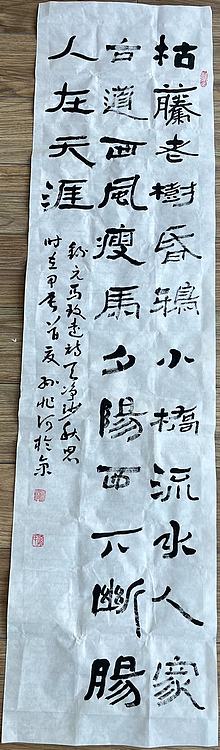 枯藤老樹昏鴉小橋流水人家
古道西風瘦馬夕陽西下斷腸
人在天涯
錄元馬致遠詩天净沙秋思
时在甲辰首夏於京